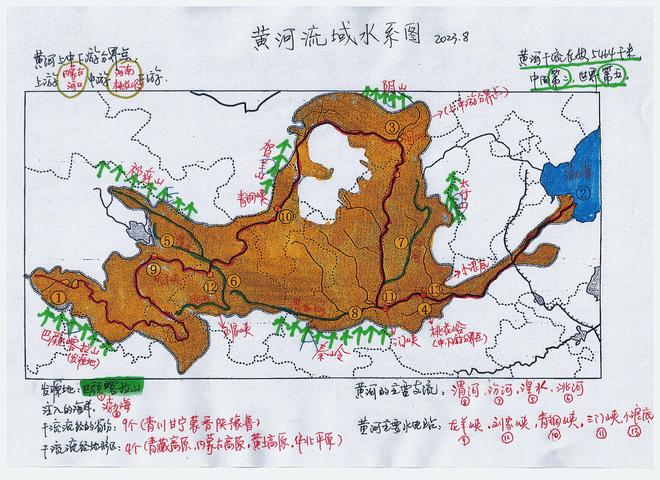 黄河流域水系图 2023.8
黄河上中下游分界点
上游 内蒙古河口 中游 河南桃花峪 下游
黄河干流全长5464千米
中国第二,世界第五
阴山
(上中游分界点)
③
贺兰山
祁连山
青铜峡
太行山
渤海
②
⑩
⑤
⑦
⑨
⑫
⑥
①
⑧
⑪
⑬
④
小浪底
巴颜喀拉山
(发源地)
刘家峡
秦岭
三门峡
桃花峪
(中下游分界点)
发源地:巴颜喀拉山
①
注入的海洋:渤海
②
干流流经的省份:9个(青川甘宁蒙晋陕豫鲁)
干流流经地形区:4个(青藏高原,内蒙古高原,黄土高原,华北平原)
黄河的主要支流:渭河,汾河,湟水,洮河
⑧ ⑦ ⑤ ⑥
黄河主要水电站:龙羊峡,刘家峡,青铜峡,三门峡,小浪底
⑨ ⑫ ⑩ ⑪ ⑬